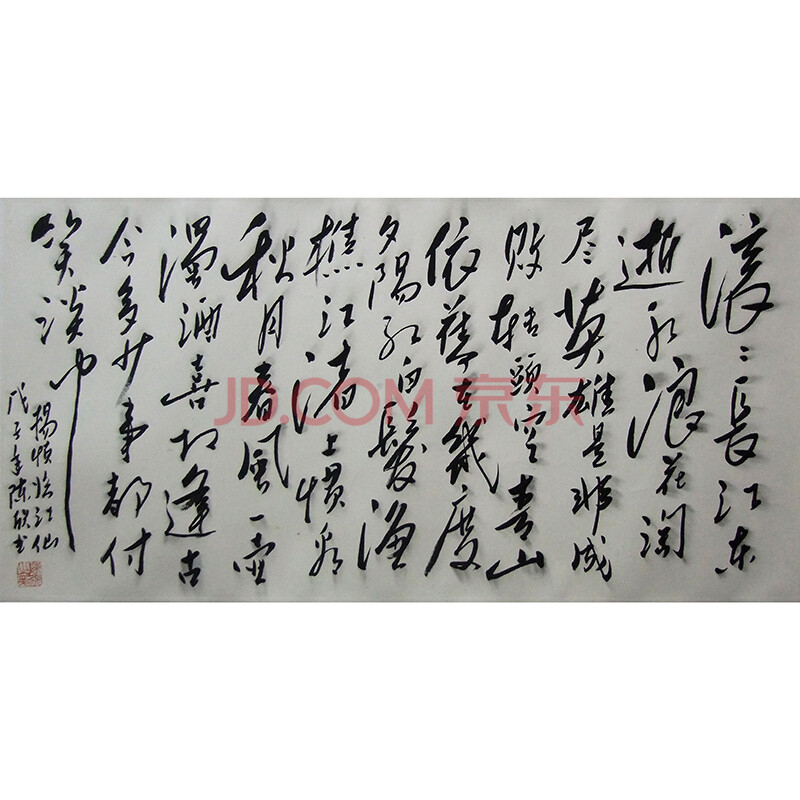 滚〻長江东
逝水浪花淘
尽英雄是非成
败转頭空青山
依舊在幾度
夕陽红白髮渔
樵江渚上惯看
秋月春風一壶
濁酒喜相逢古
今多少事都付
笑谈中
楊慎临江仙
戊子年陈欣书
JD.COM 京东